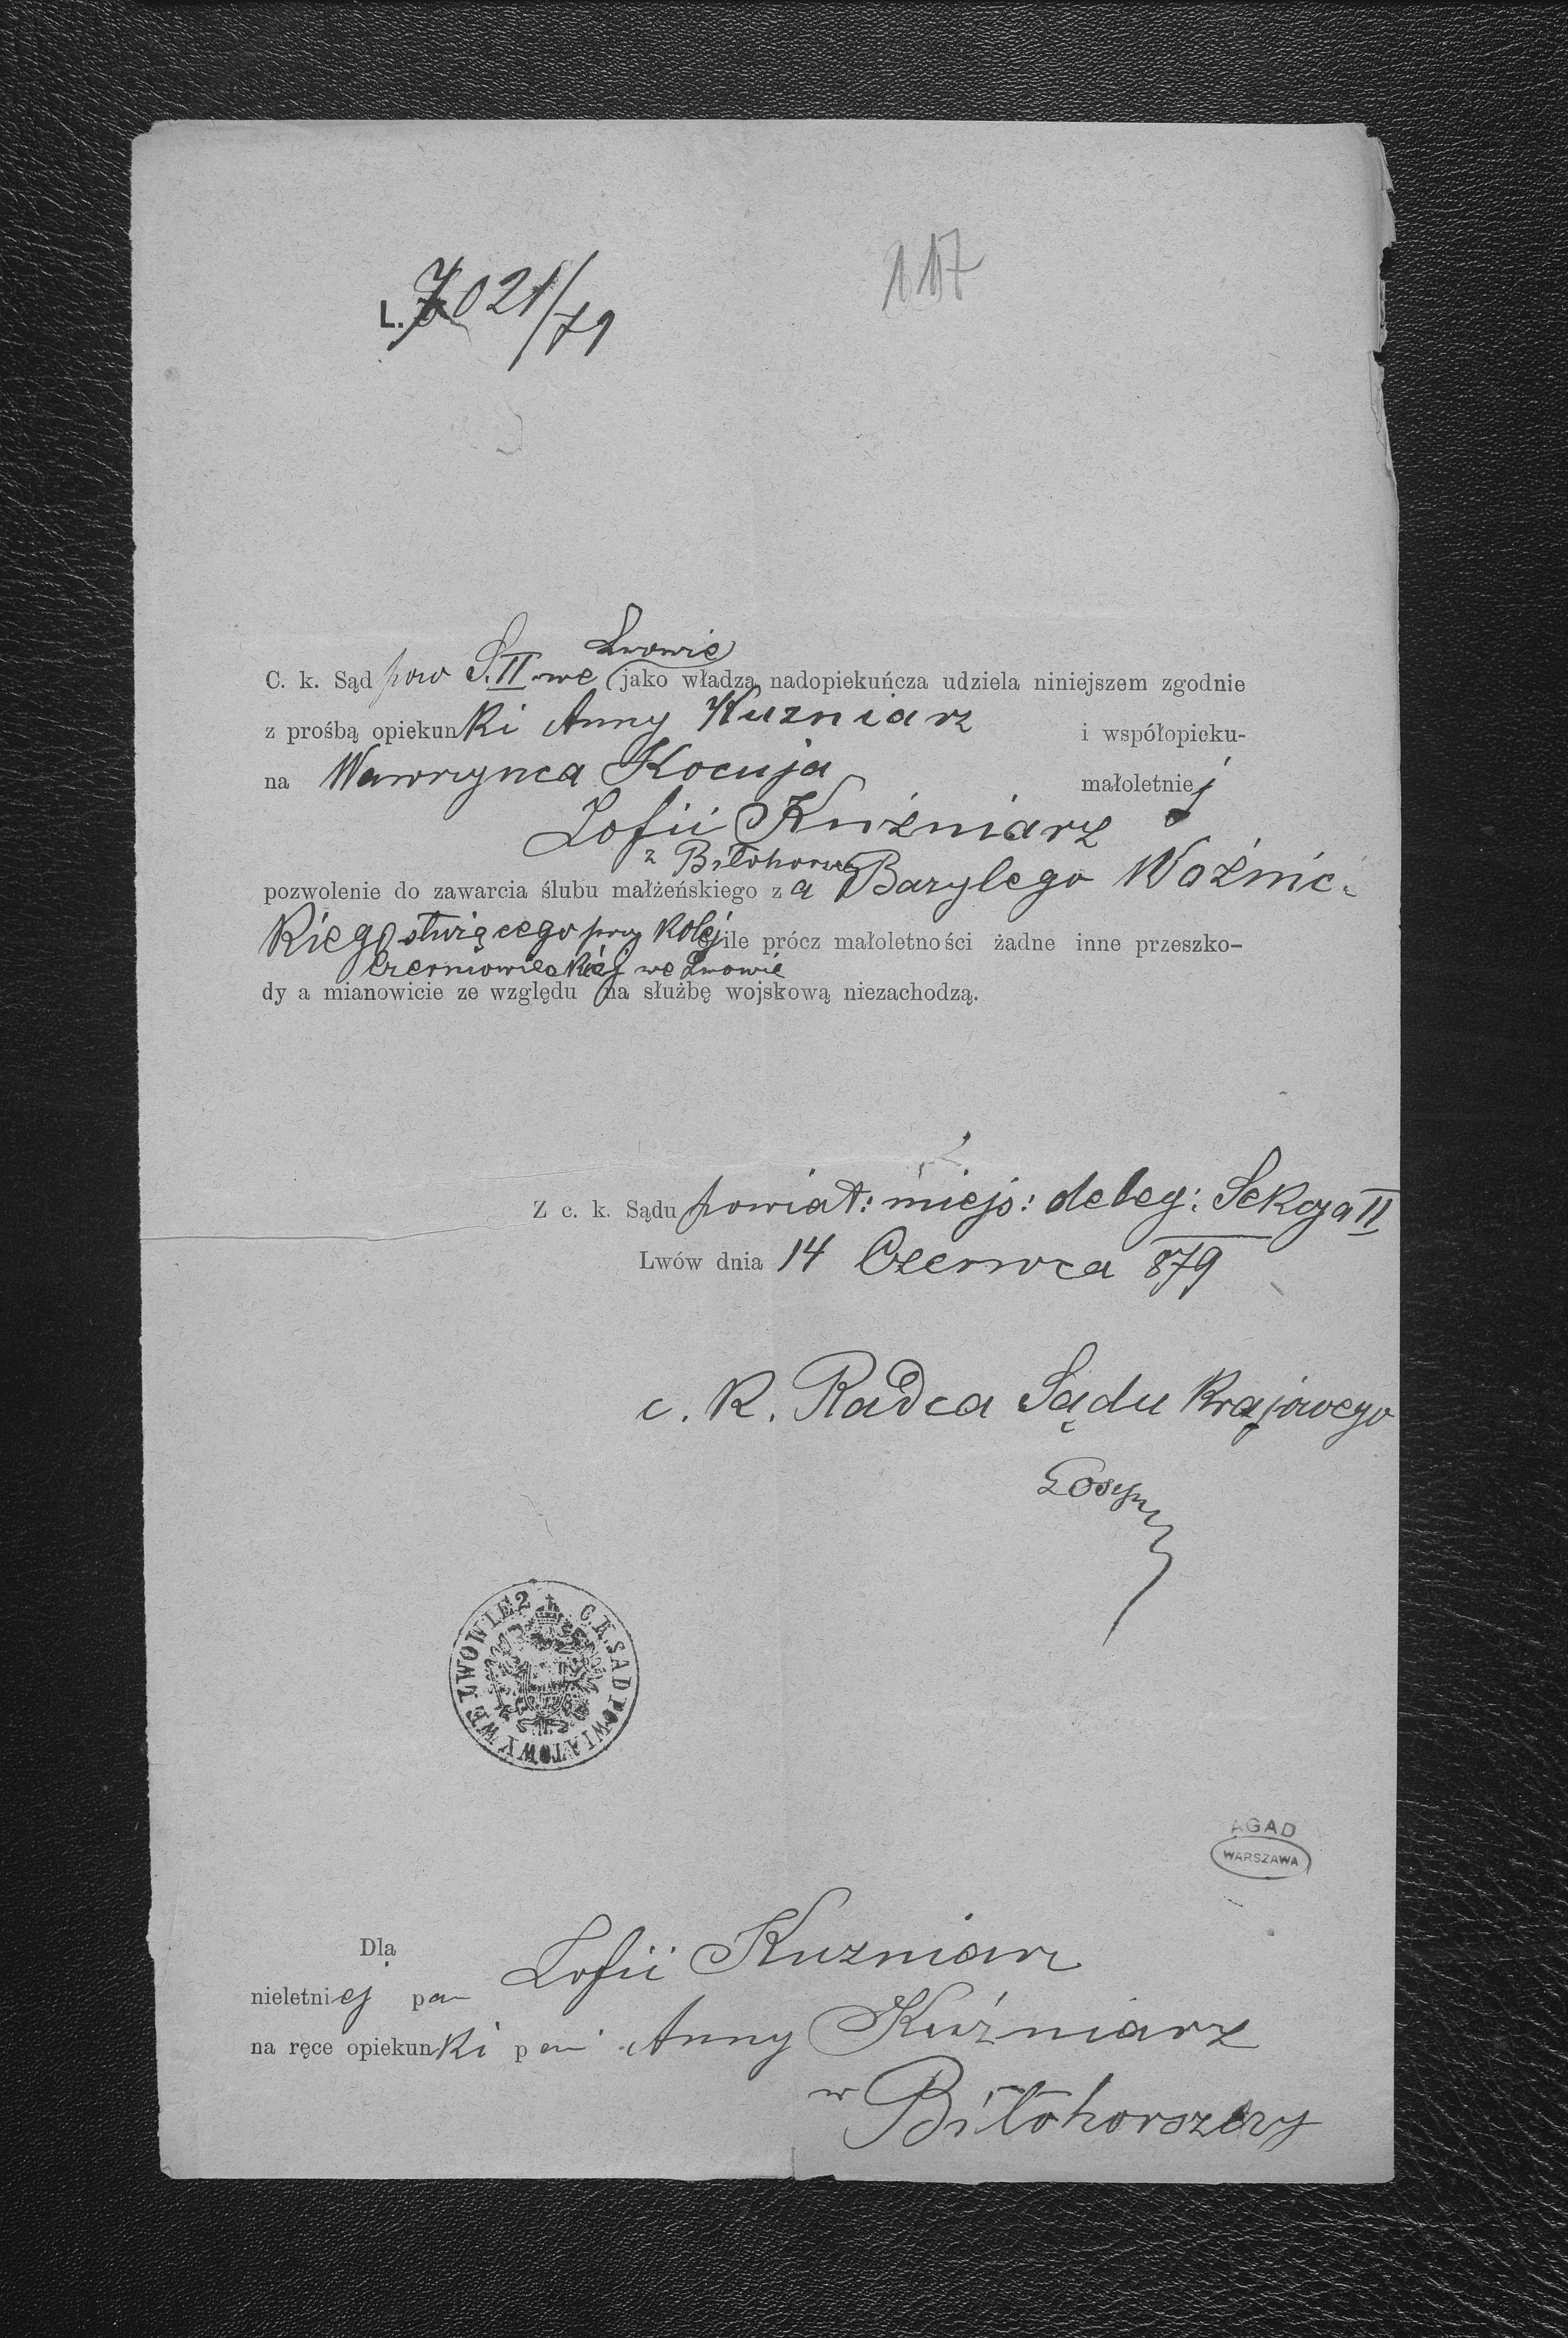 117
L. 7021/79
C. k. Sąd pow S. II. we Lwowie jako władza nadopiekuńcza udziela niniejszem zgodnie
z prośbą opiekunki Anny Kuzniarz i współopieku-
na Wawrzynca Kocuja małoletniej
Zofii Kuźniarz
z Biłohorszczy
pozwolenie do zawarcia ślubu małżeńskiego za Barylego Woźnic-
kiego służącego przy kolej ile prócz małoletności żadne inne przeszko-
Czerniowieckiéj we Lwowie
dy a mianowicie ze względu na służbę wojskową niezachodzą.
Z c. k. Sądu powiat: miejs: deleg: Sekcya II
Lwów dnia 14 Czerwca 879
c. k. Radca Sądu Krajowego
C.K.SĄD POWIATOWY WE LWOWIE 2
AGAD
WARSZAWA
Dla
nieletniej pan Zofii Kuzniarz
na ręce opiekunki pani Anny Kuźniarz
w Biłohorszczy